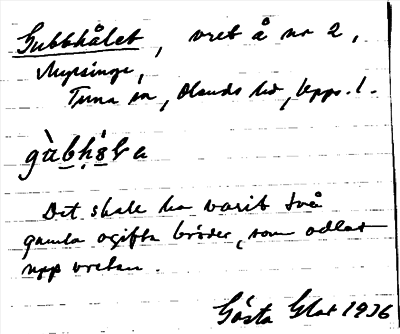 Gubbhålet, vret å nr 2,
Mysinge,
Tuna sn, Olands hd, Upps. l.
Det skale ha varit två
gamla ogifta bröder, som odlat
upp vretan.
Gösta Glat 1936